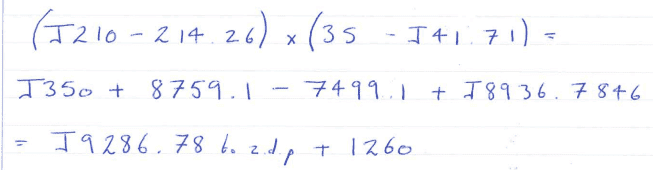 (J210 - 214.26) x (35 - J41.71) =
J350 + 8759.1 - 7499.1 + J8936.7846
= J9286.78 to 2.d.p + 1260